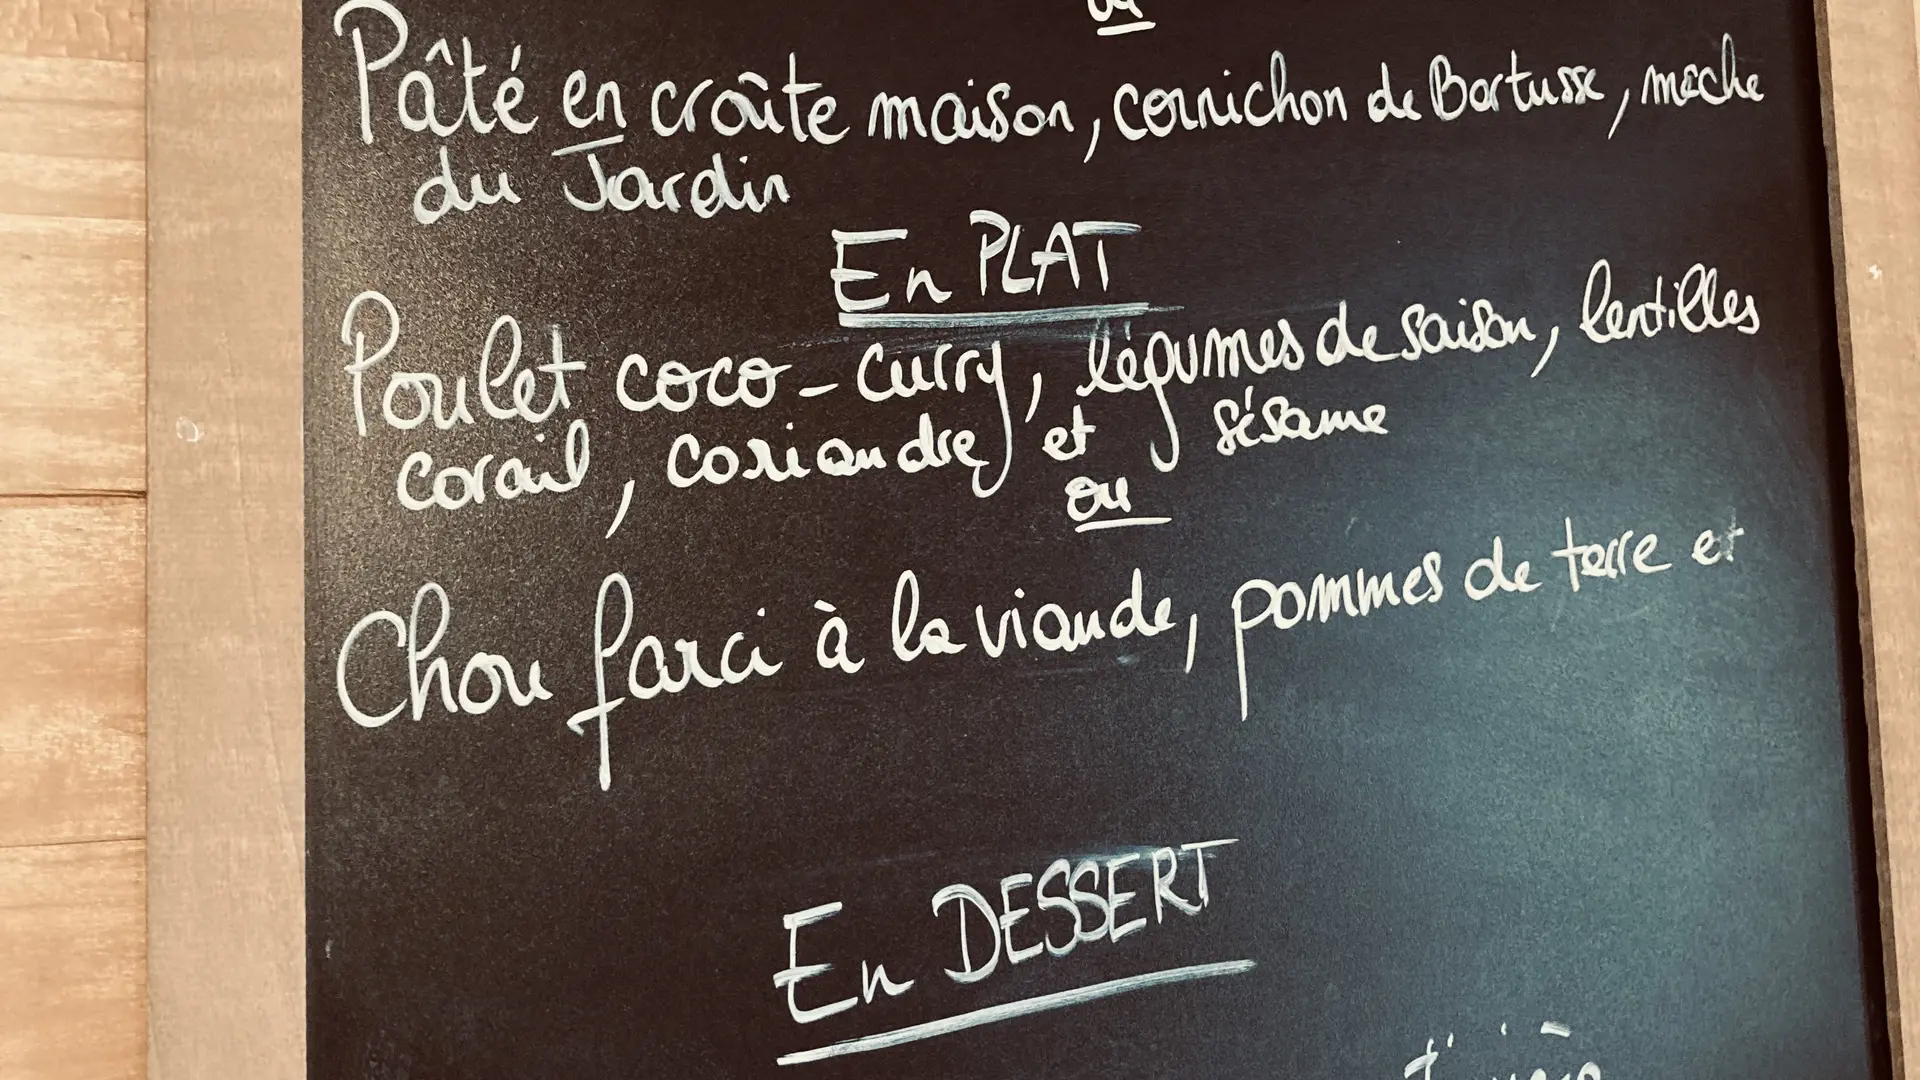 ou
Pâté en croûte maison, cornichon de Bartusse, mâche
du Jardin
En PLAT
Poulet coco-curry, légumes de saison, lentilles
corail, coriandre et sésame
ou
Chou farci à la viande, pommes de terre et
En DESSERT